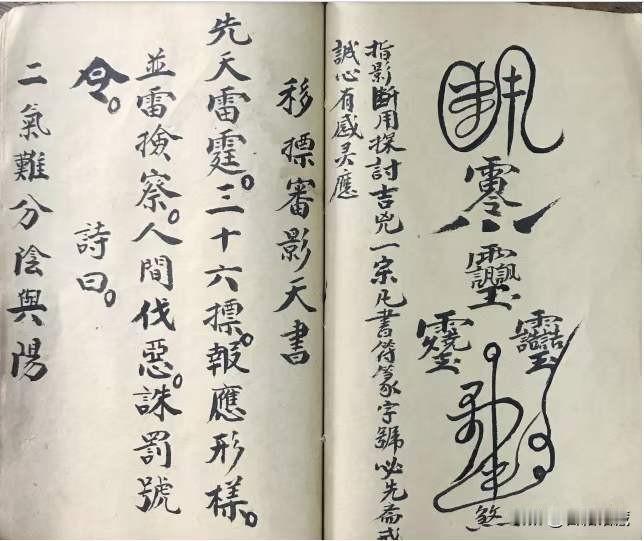 零
煞
指影断用探討吉兇一宗凡書符篆字號必先斋戒
誠心有感灵應
移摽審影天書
先天雷霆。三十六摽。報應形樣。
並雷撿察。人間伐惡。誅罰號
令。
詩曰。
二氣難分陰與陽